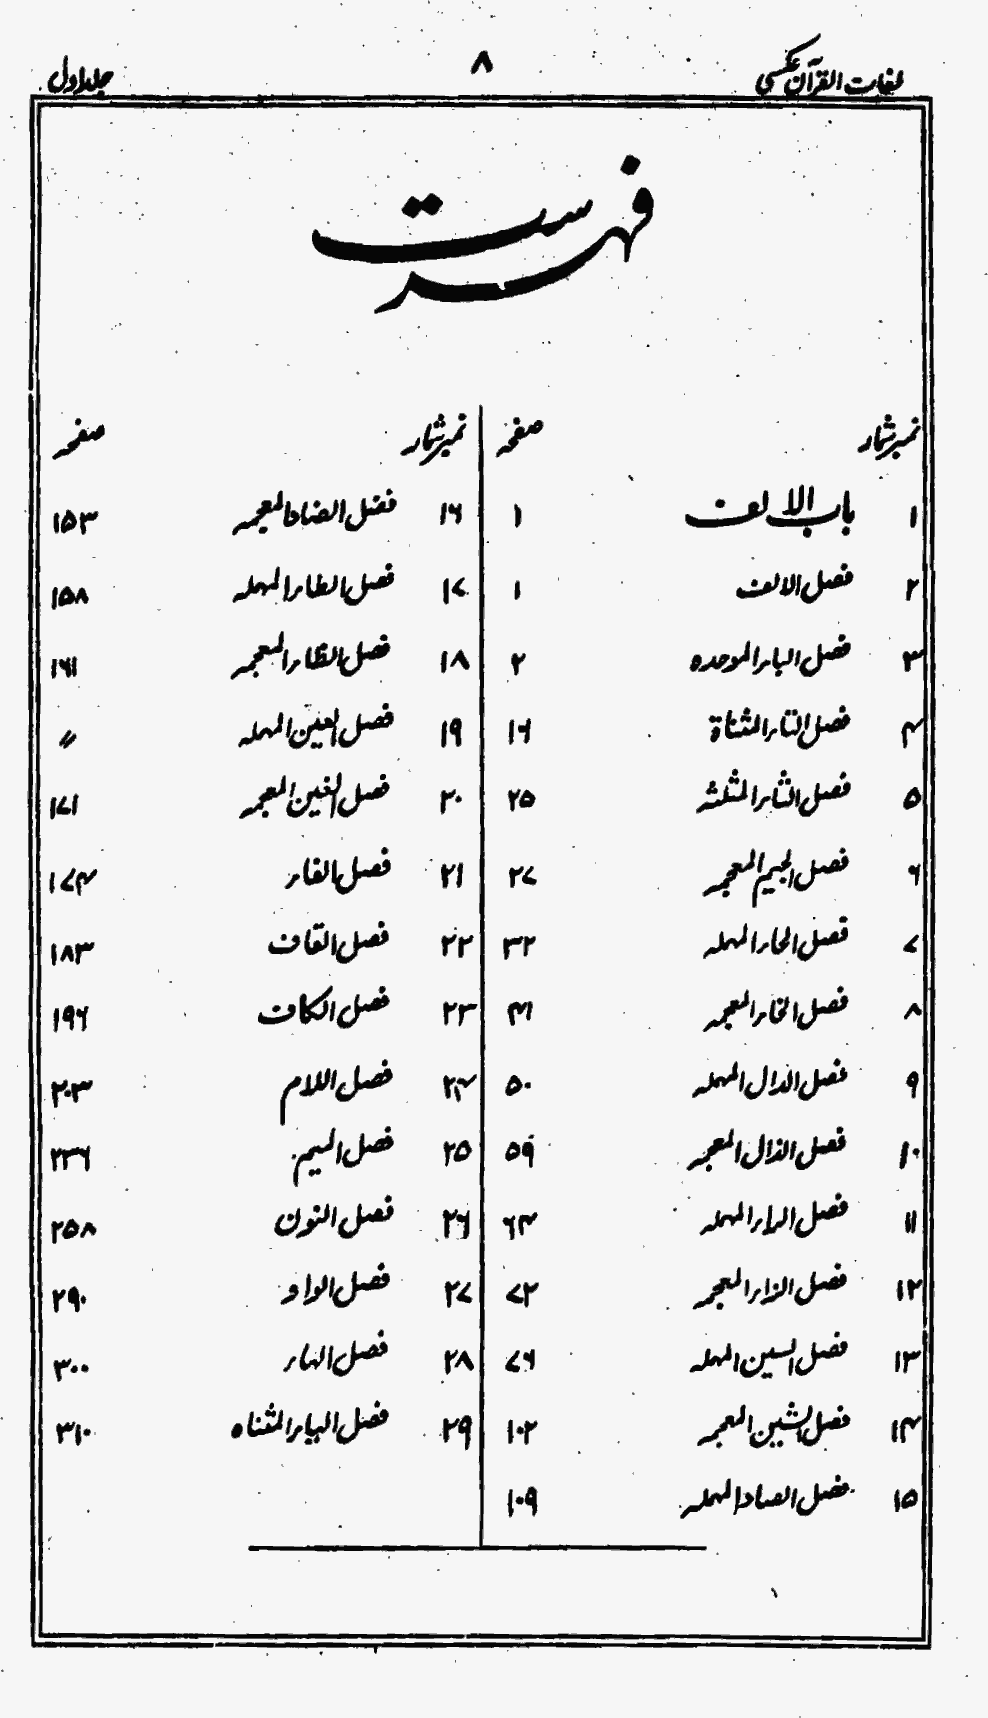 لغات القرآن عکسی ۸ جلد اول
فہرست
نمبر شمار صفحہ
۱ باب الالف ۱
۲ فصل الالف ۱
۳ فصل الباء الموحده ۲
۴ فصل التاء المثناة ۱۶
۵ فصل الثاء المثلثہ ۲۵
۶ فصل الجیم المعجمہ ۲۷
۷ فصل الحاء المہملہ ۳۲
۸ فصل الخاء المعجمہ ۴۱
۹ فصل الدال المہملہ ۵۰
۱۰ فصل الذال المعجمہ ۵۹
۱۱ فصل الراء المہملہ ۶۴
۱۲ فصل الزاء المعجمہ ۷۲
۱۳ فصل السین المہملہ ۷۶
۱۴ فصل الشین المعجمہ ۱۰۲
۱۵ فصل الصاد المہملہ ۱۰۹
نمبر شمار صفحہ
۱۶ فصل الضاد المعجمہ ۱۵۳
۱۷ فصل الطاء المہملہ ۱۵۸
۱۸ فصل الظاء المعجمہ ۱۶۱
۱۹ فصل العین المہملہ 〃
۲۰ فصل الغین المعجمہ ۱۷۱
۲۱ فصل الفاء ۱۷۴
۲۲ فصل القاف ۱۸۳
۲۳ فصل الکاف ۱۹۶
۲۴ فصل اللام ۲۰۳
۲۵ فصل المیم ۲۳۶
۲۶ فصل النون ۲۵۸
۲۷ فصل الواو ۲۹۰
۲۸ فصل الہاء ۳۰۰
۲۹ فصل الیاء المثناه ۳۱۰